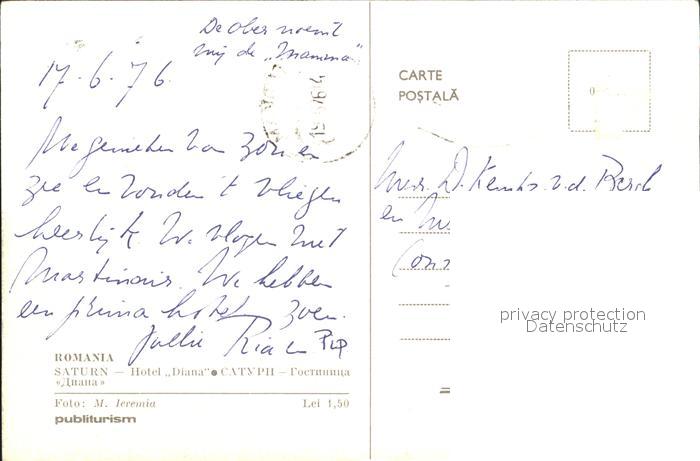 De ober noemt
mij de „Mamma"
17.6.76.
We genieten van zon en
zee en vonden 't vliegen
heerlijk. We vlogen met
Martinair. We hebben
een prima hotel, zoen.
Jullie Ria en Piet
ROMANIA
SATURN — Hotel „Diana" ● САТУРН — Гостиница
«Диана»
Foto: M. Ieremia Lei 1,50
publiturism
CARTE
POȘTALĂ
Mevr. D. v.d.
en
privacy protection
Datenschutz